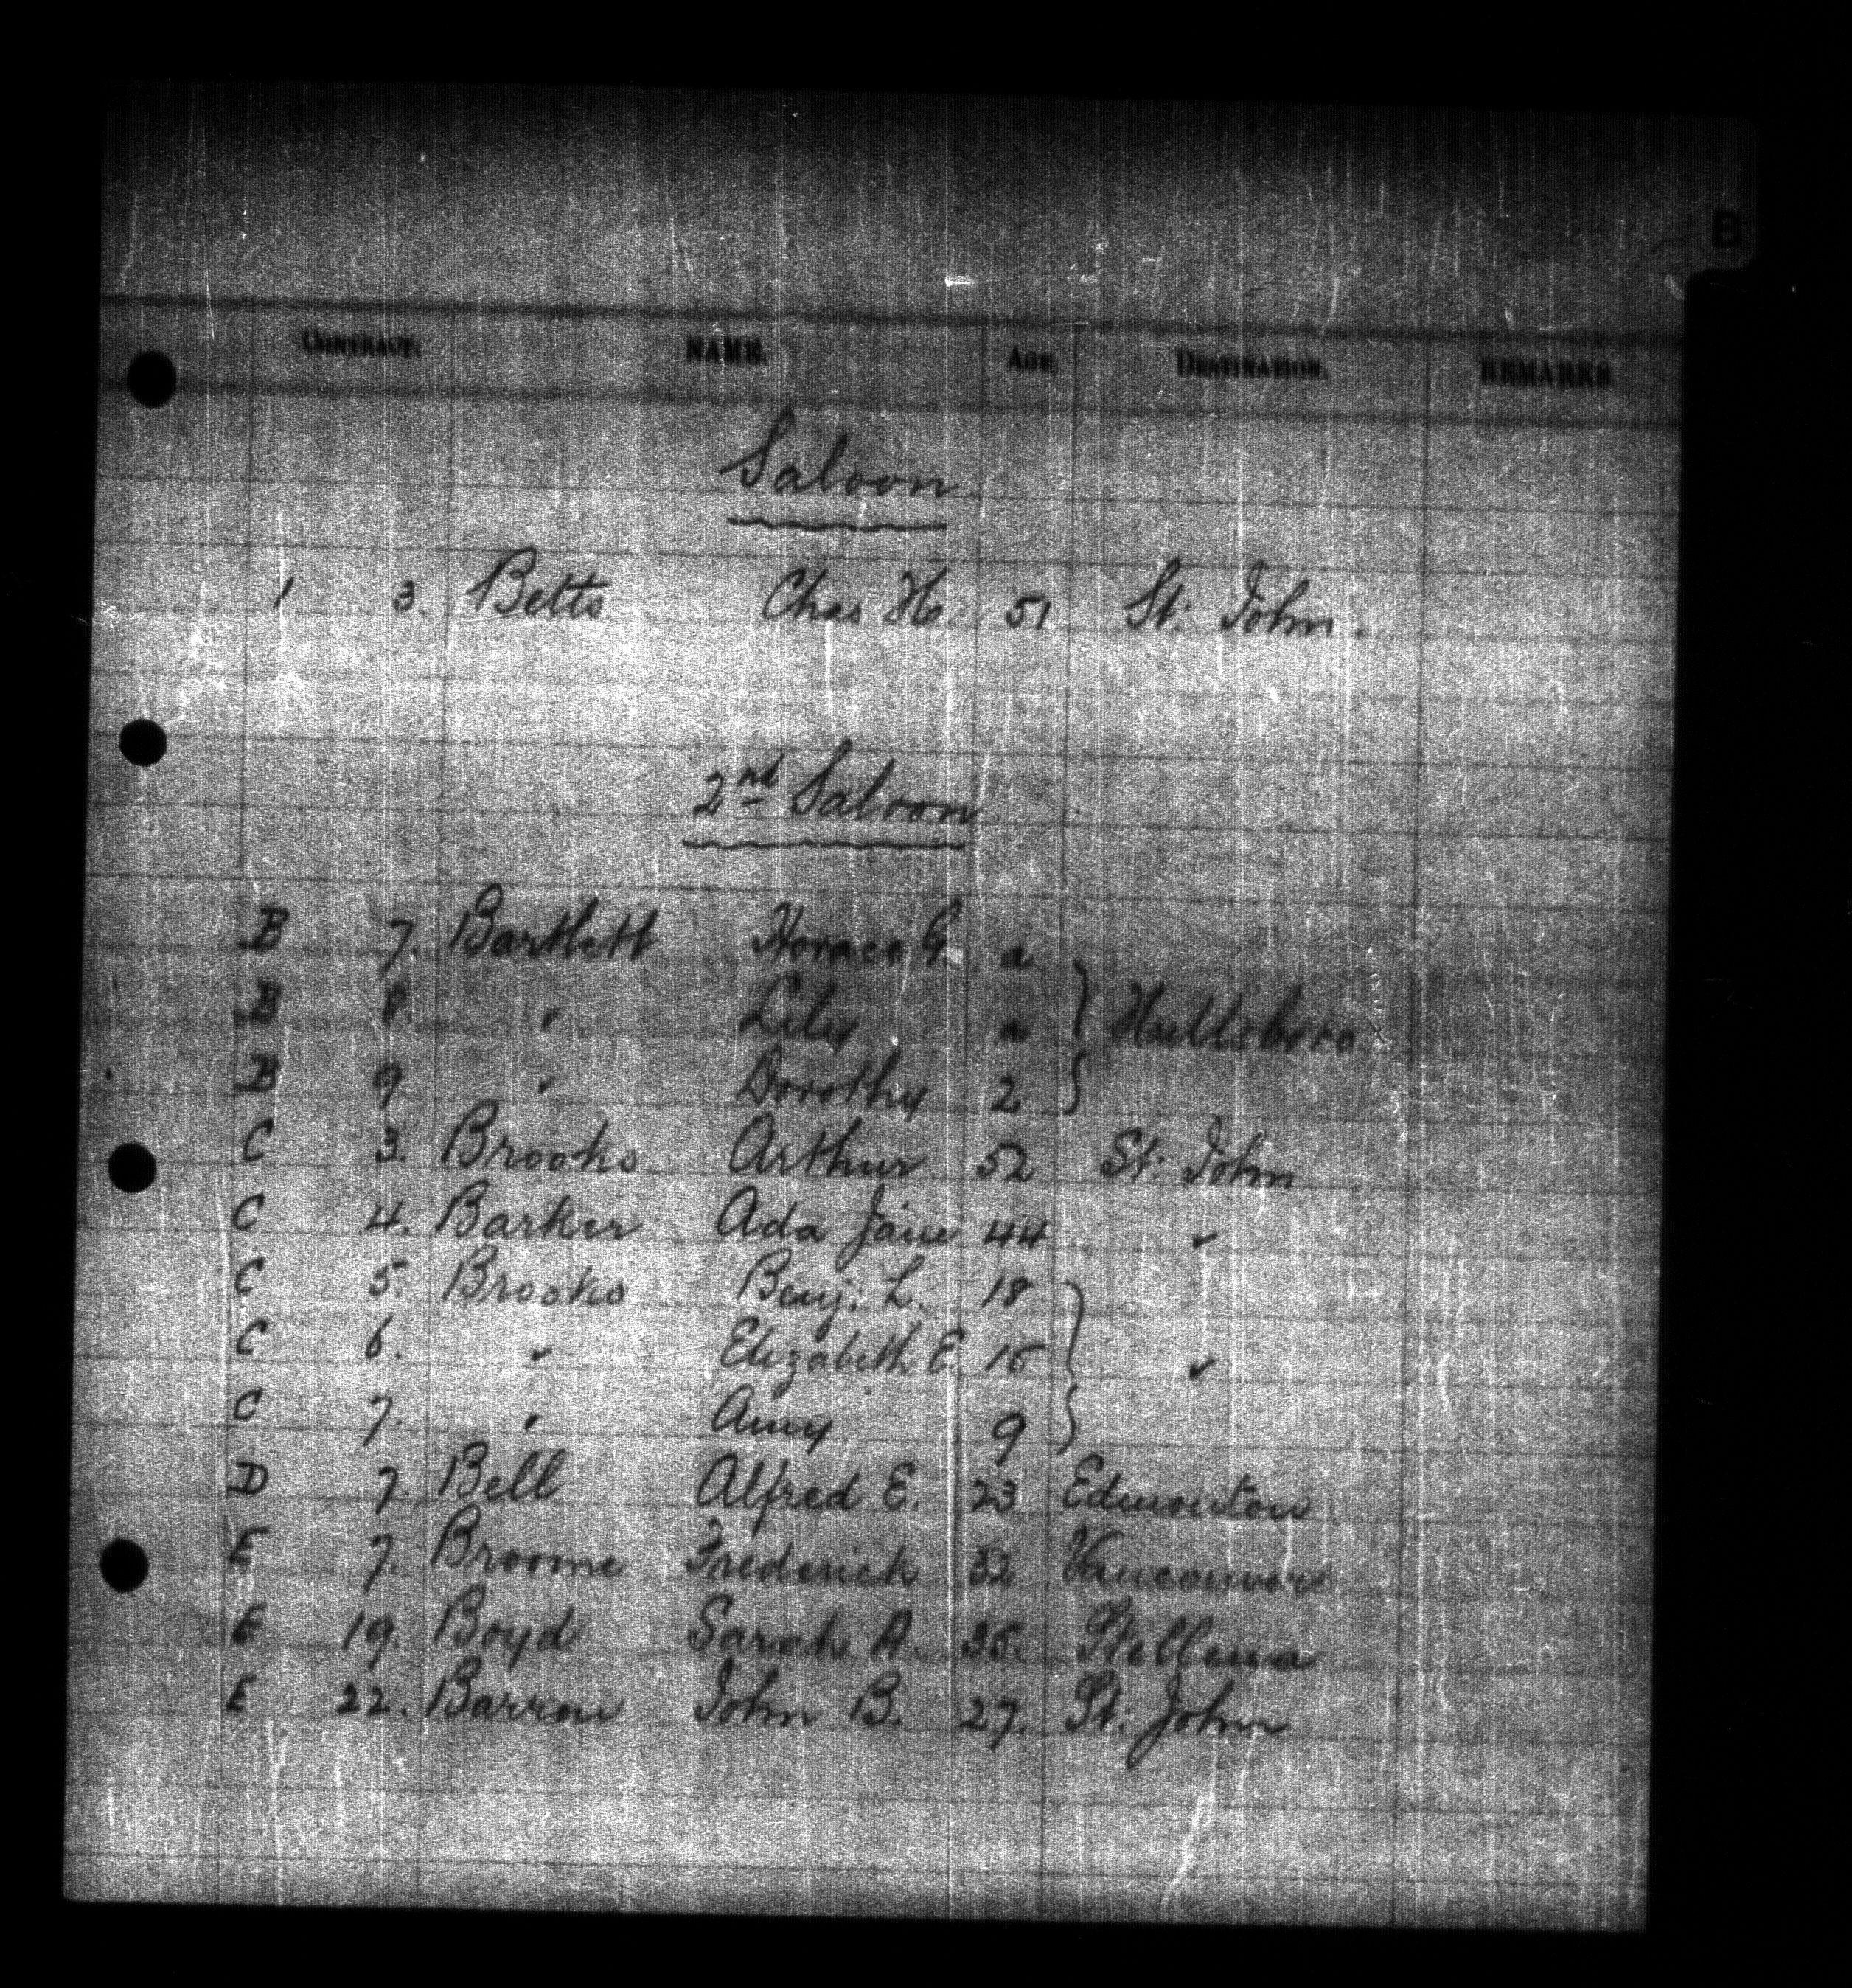 B
CONTRACT. NAME. AGE. DESTINATION. REMARKS.
Saloon
1 3. Betts Chas H. 51 St. John.
2nd Saloon
B 7. Bartlett Horace G. a
B 8 " Lily a
B 9 " Dorothy 2
C 3. Brooks Arthur 52 St. John
C 4. Barker Ada Jane 44 "
C 5. Brooks Benj. L. 18
C 6. " Elizabeth E. 15 "
C 7. " Amy 9
D 7. Bell Alfred E. 23 Edmonton
E 7. Broome Frederick 32 Vancouver
E 19. Boyd Sarah A. 35.
E 22. John B. 27. St. John